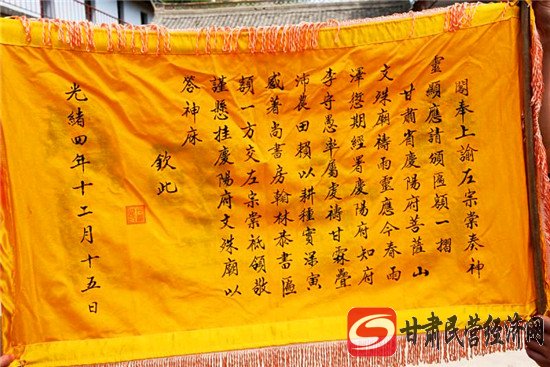 閣奉上諭左宗棠奏神
靈顯應請頒匾額一摺
甘肅省慶陽府菩薩山
文殊廟禱雨靈應今春雨
澤愆期經署慶陽府知府
李守愚率屬虔禱甘霖疊
沛農田賴以耕種實深寅
感著尚書房翰林恭書匾
額一方交左宗棠祗領敬
謹懸挂慶陽府文殊廟以
答神庥
欽此
光緒四年十二月十五日
甘肃民营经济网